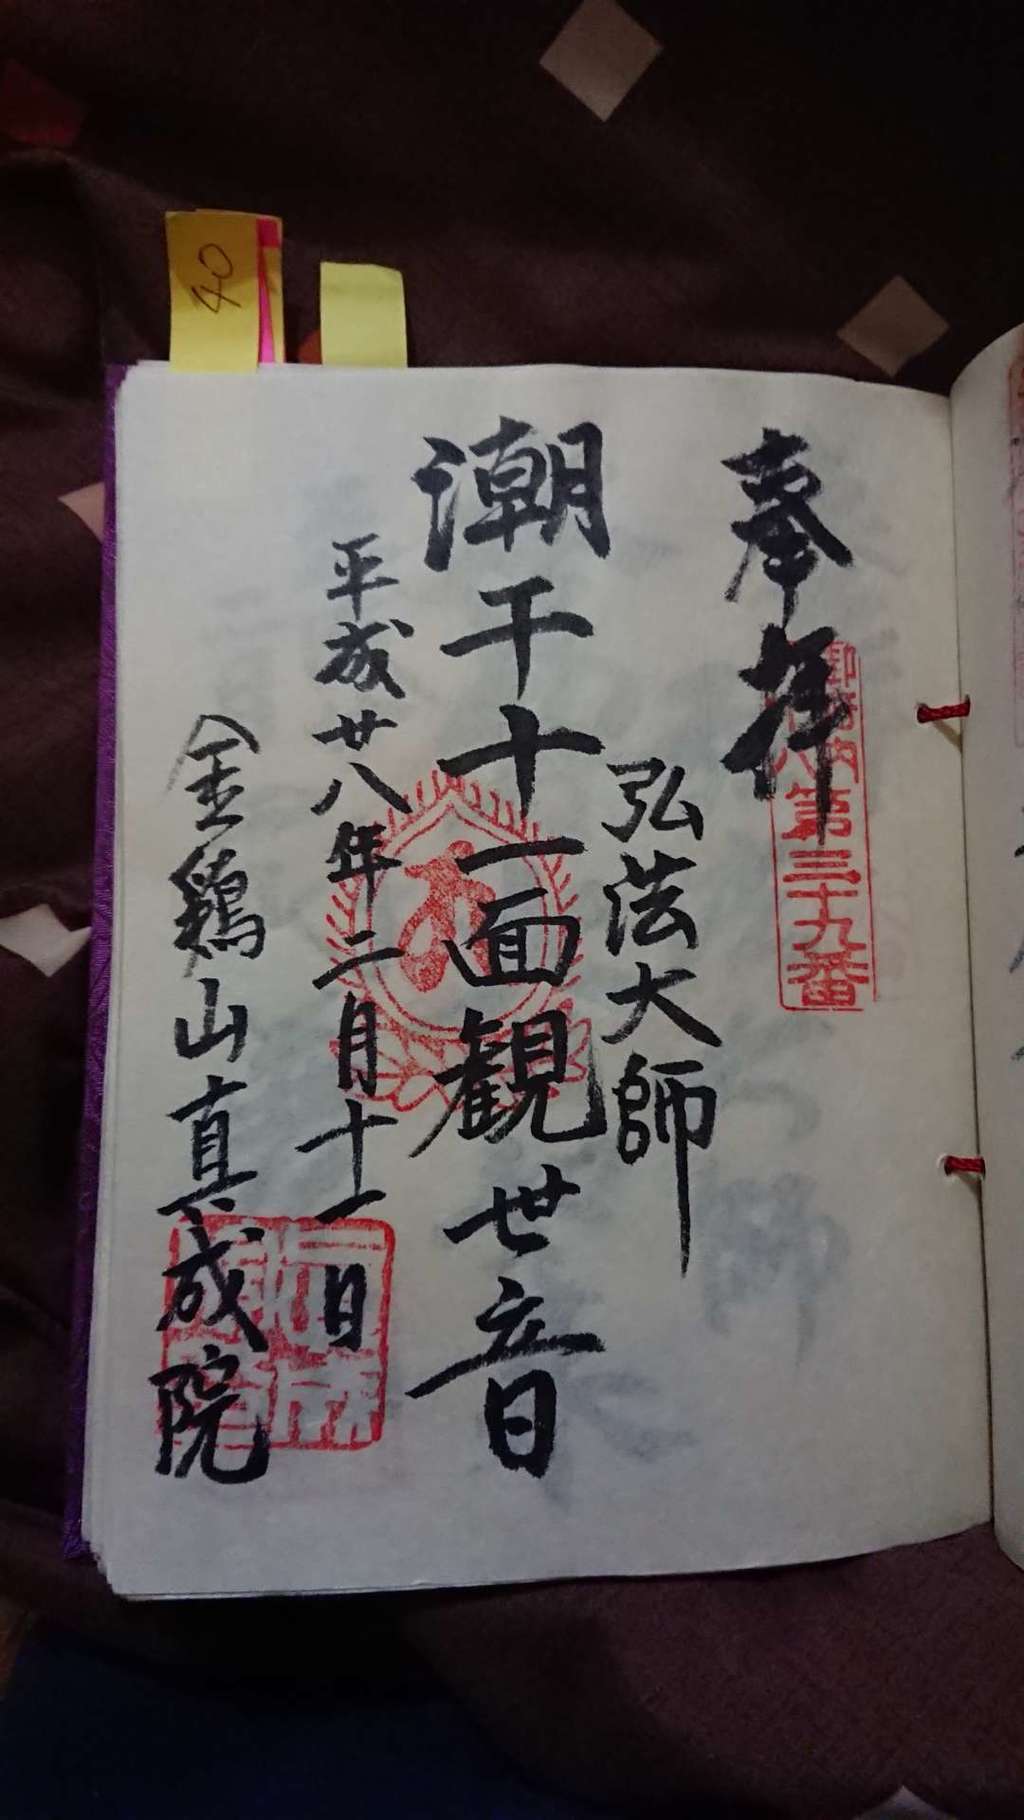 奉拝
第三十九番
弘法大師
潮干十一面観世音
平成廿八年二月十一日
金鶏山真成院
40